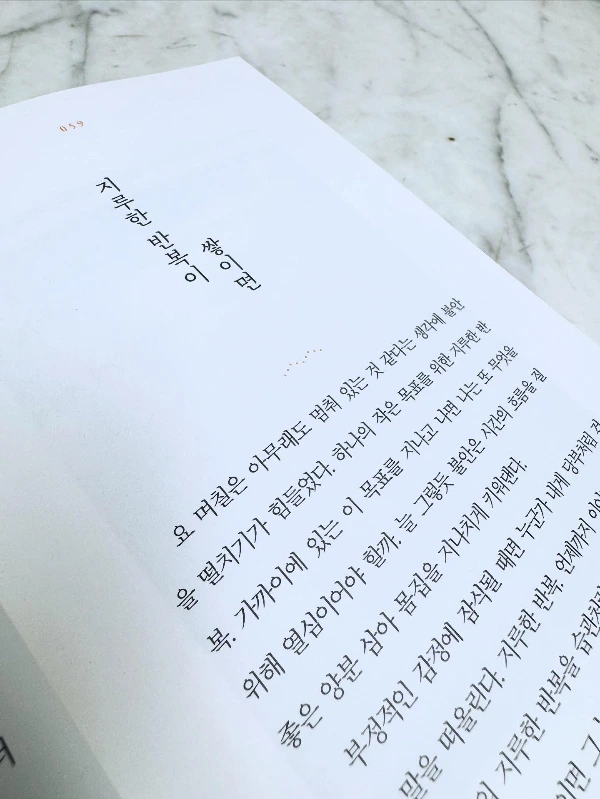 059
지루한 반복이
쌓이면
요 며칠은 아무래도 멈춰 있는 것 같다는 생각에 불안
을 떨치기가 힘들었다. 하나의 작은 목표를 위한 지루한 반
복. 가까이에 있는 이 목표를 지나고 나면 나는 또 무엇을
위해 열심이어야 할까. 늘 그렇듯 불안은 시간의 흐름을 질
좋은 양분 삼아 몸집을 지나치게 키워댄다.
부정적인 감정에 잠식될 때면 누군가 내게 당부처럼
말을 떠올린다. 지루한 반복. 언제까지
의 지루한 반복을